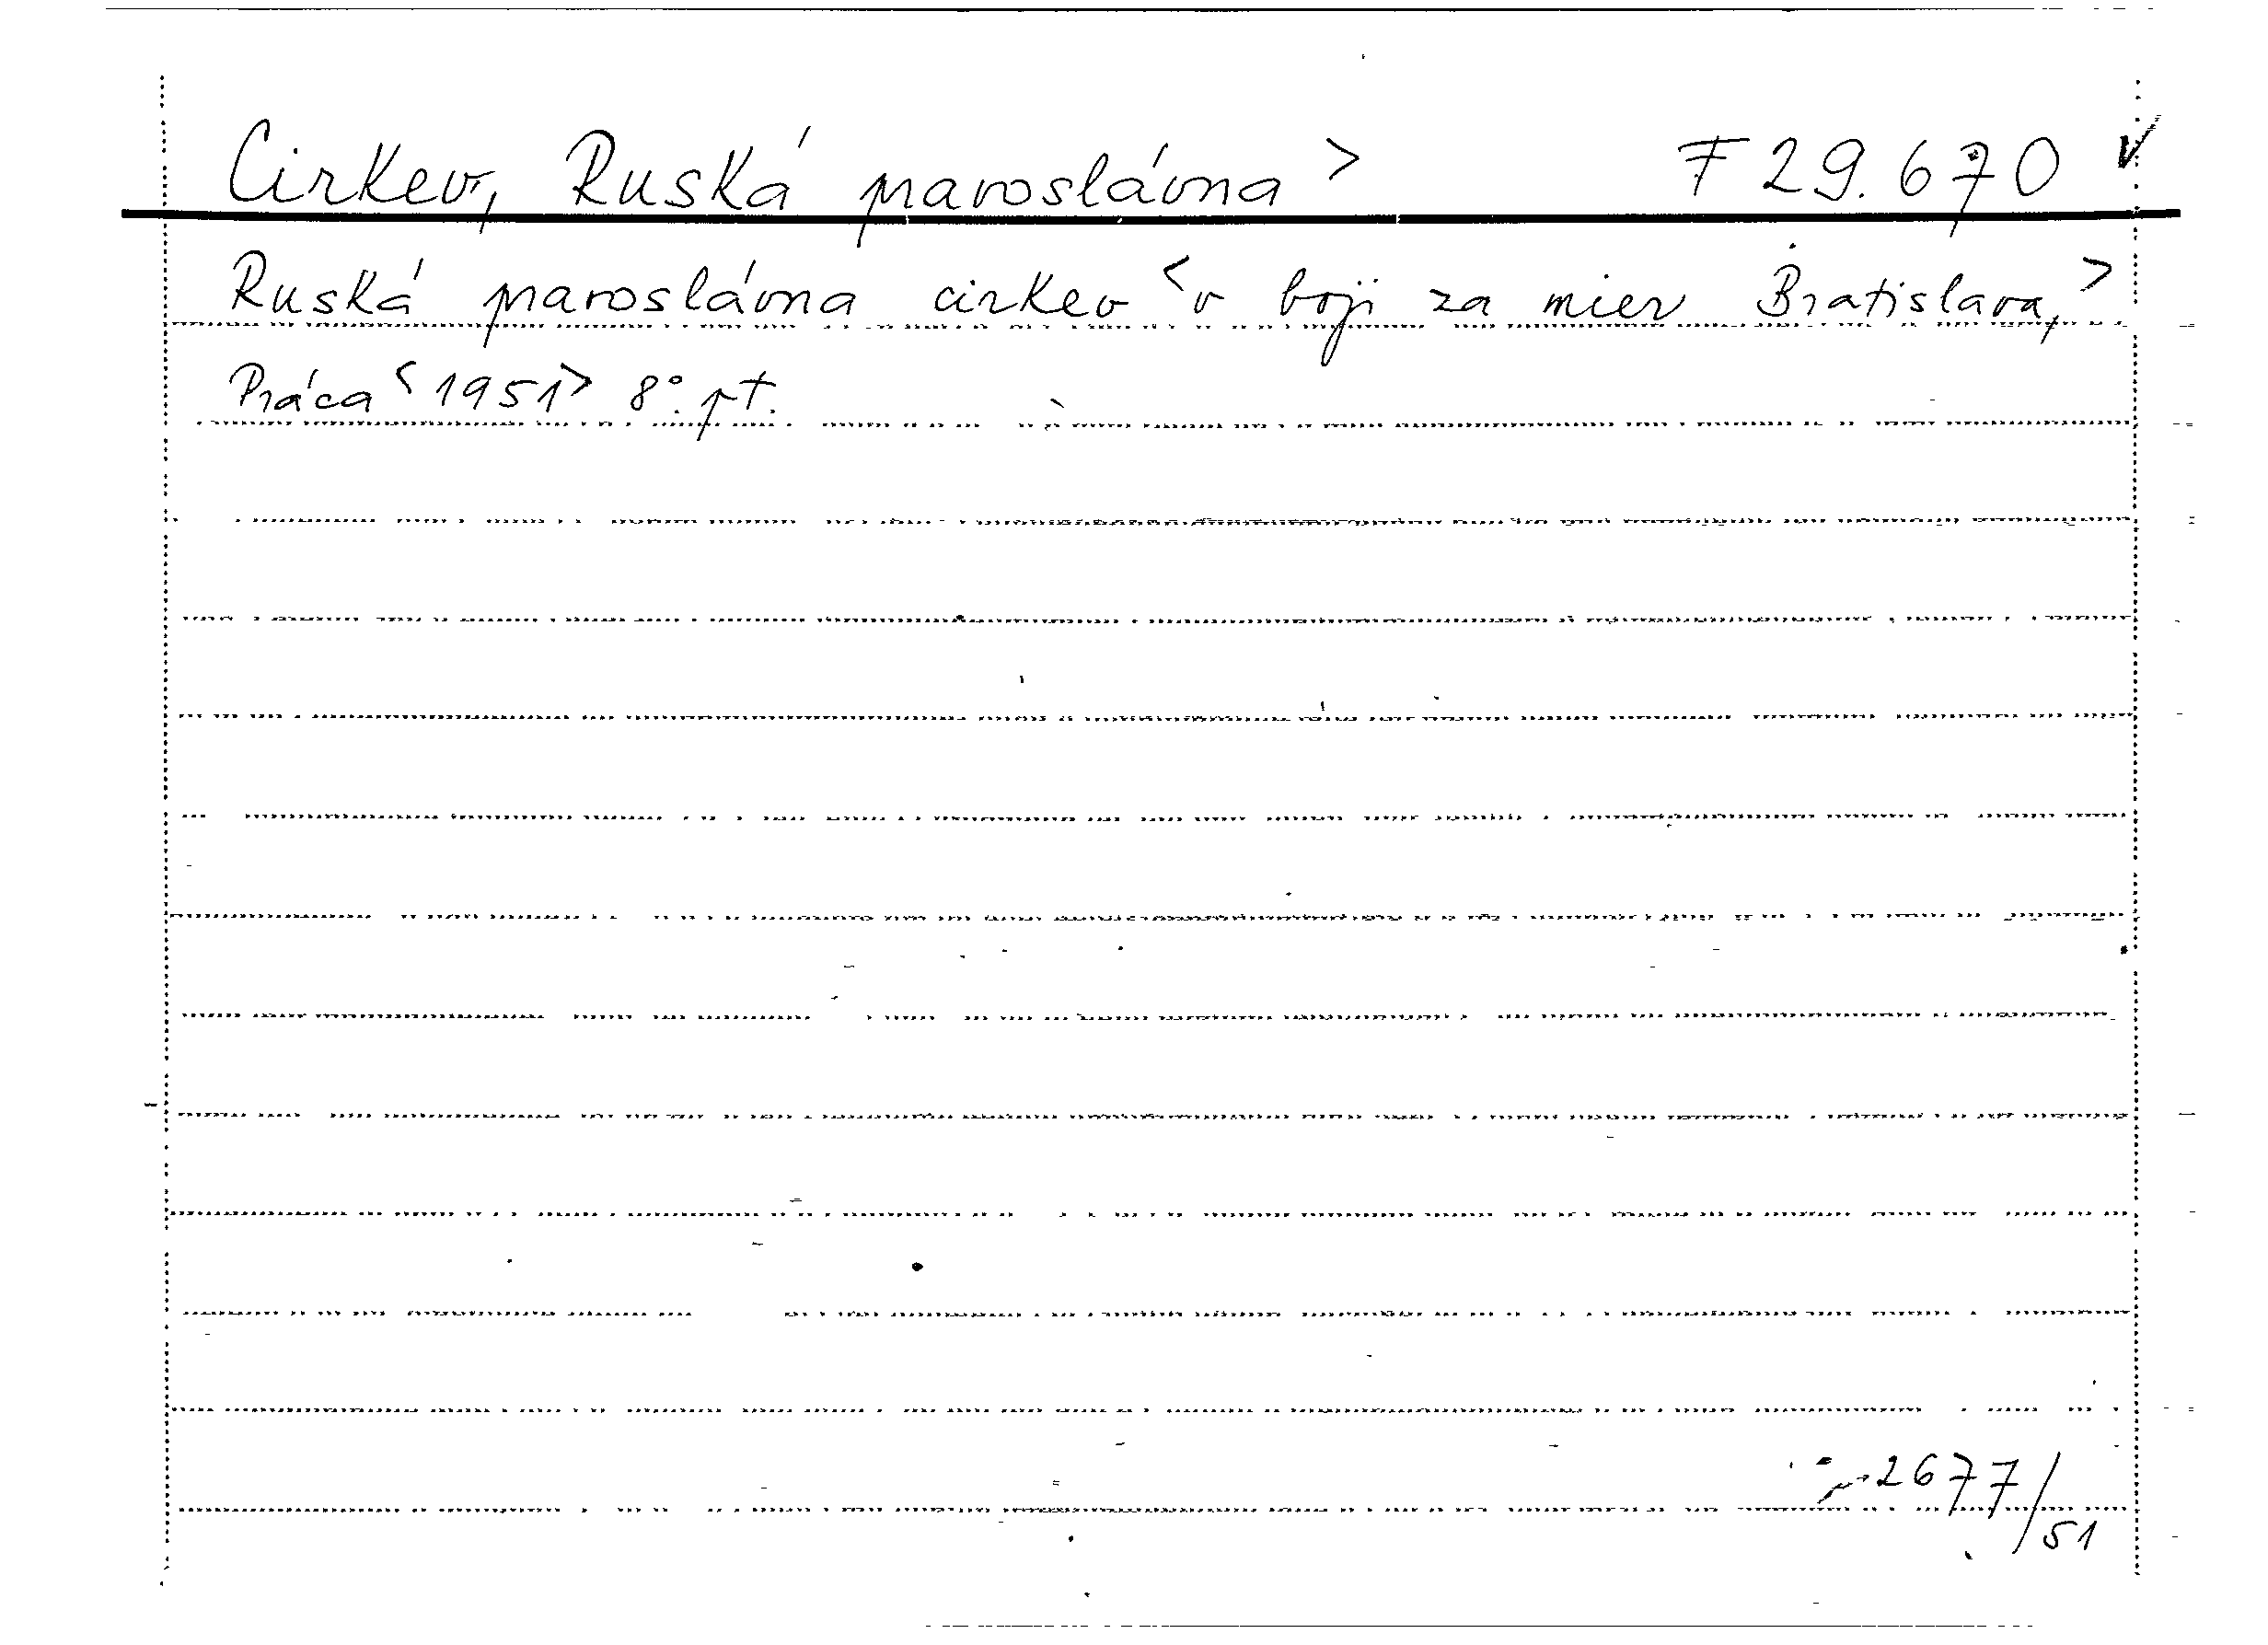 Cirkev, Ruská pravoslávna > F 29.670 v
Ruská pravoslávna cirkev < v boji za mier Bratislava, >
Práca < 1951 > 8°. pt.
2677/
51